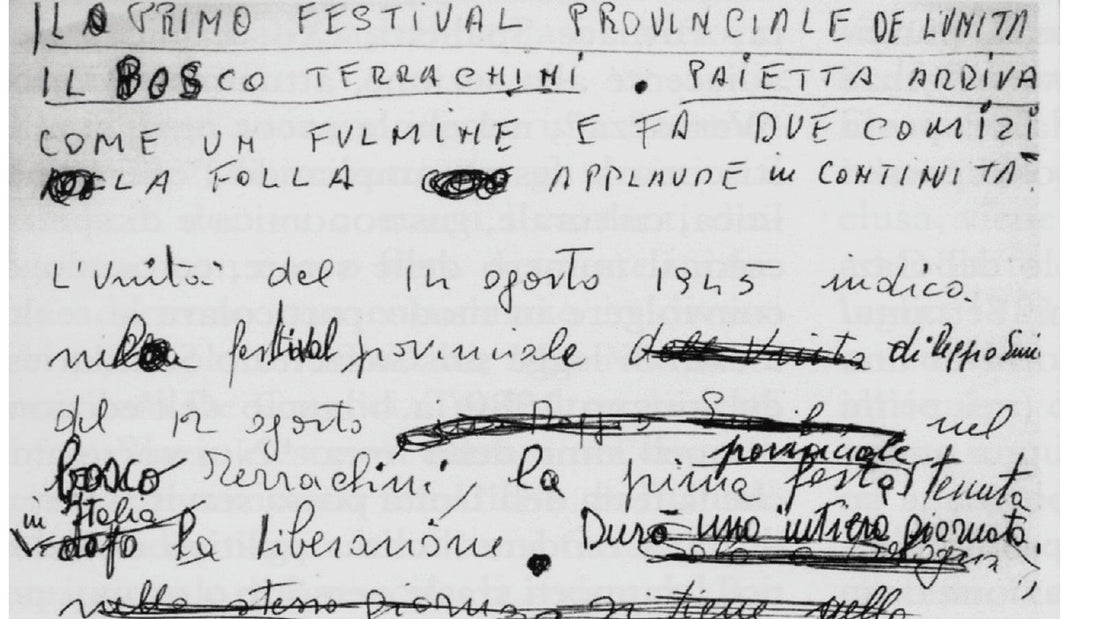 IL PRIMO FESTIVAL PROVINCIALE DE L'UNITA
BOSCO TERRACHINI. PAIETTA ARRIVA
COME UN FULMINE E FA DUE COMIZI
LA FOLLA APPLAUDE in CONTINUITA'.
L'Unità del 14 agosto 1945 indica
nel festival provinciale dell'Unità di Reggio Emilia
del 12 agosto nel
bosco Terrachini, la prima festa provinciale tenuta
in Italia dopo la liberazione. Durò una intiera giornata.
nello stesso giorno si tiene nello